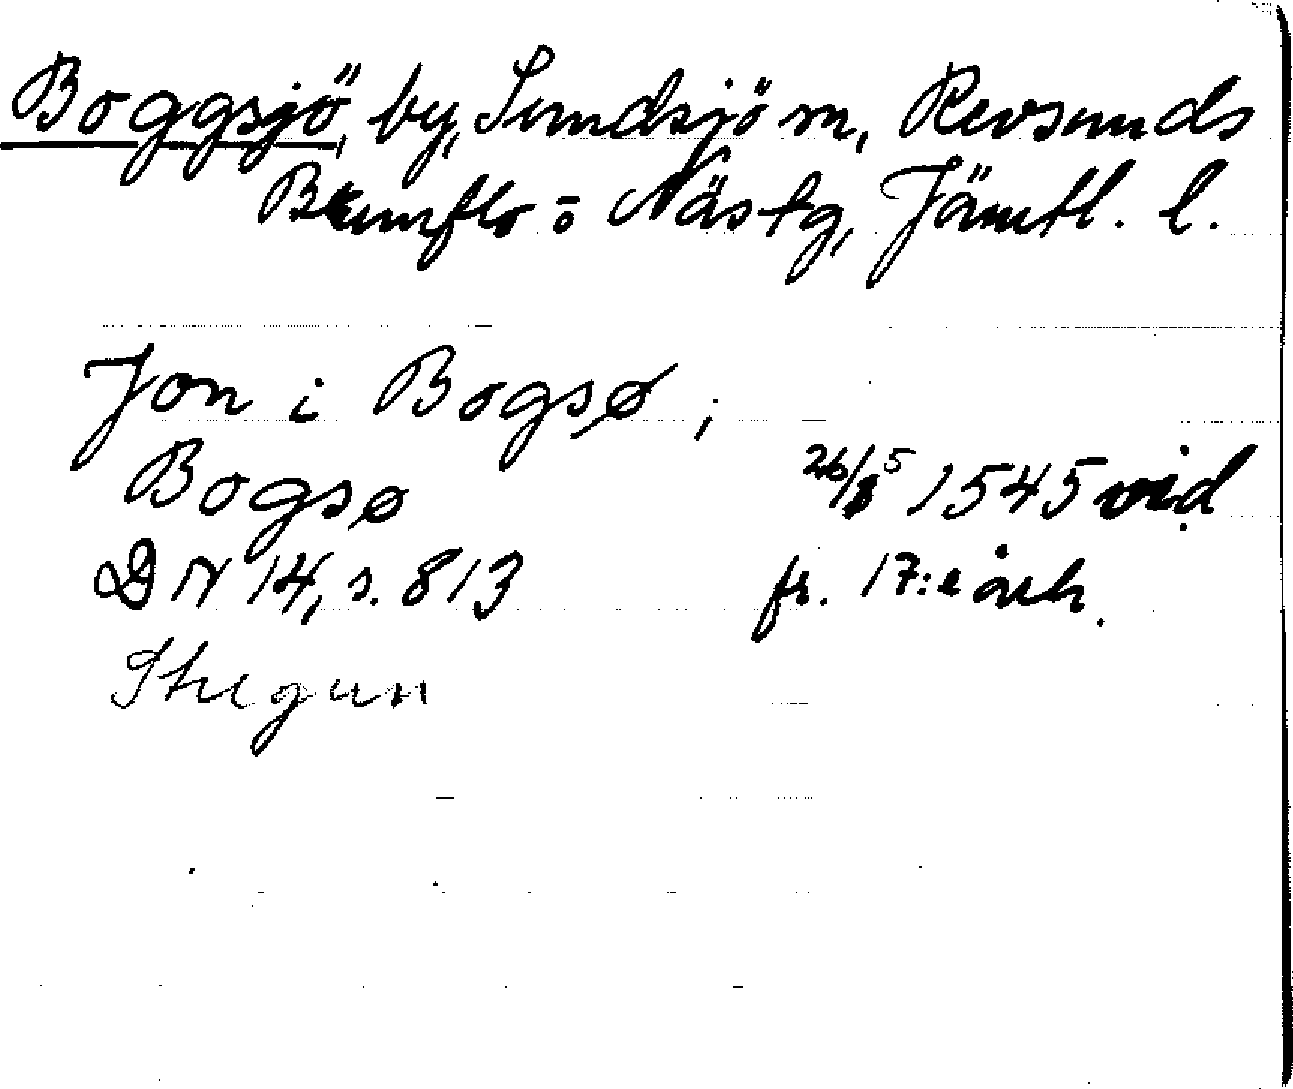 Boggsjö, by, Sundsjö sn, Revsunds
Brunflo o Näs tg, Jämtl. l.
Jon i Bogsø,
Bogsø 26/5 1545 vid.
DN 14, s. 813 fr. 17:e årh.